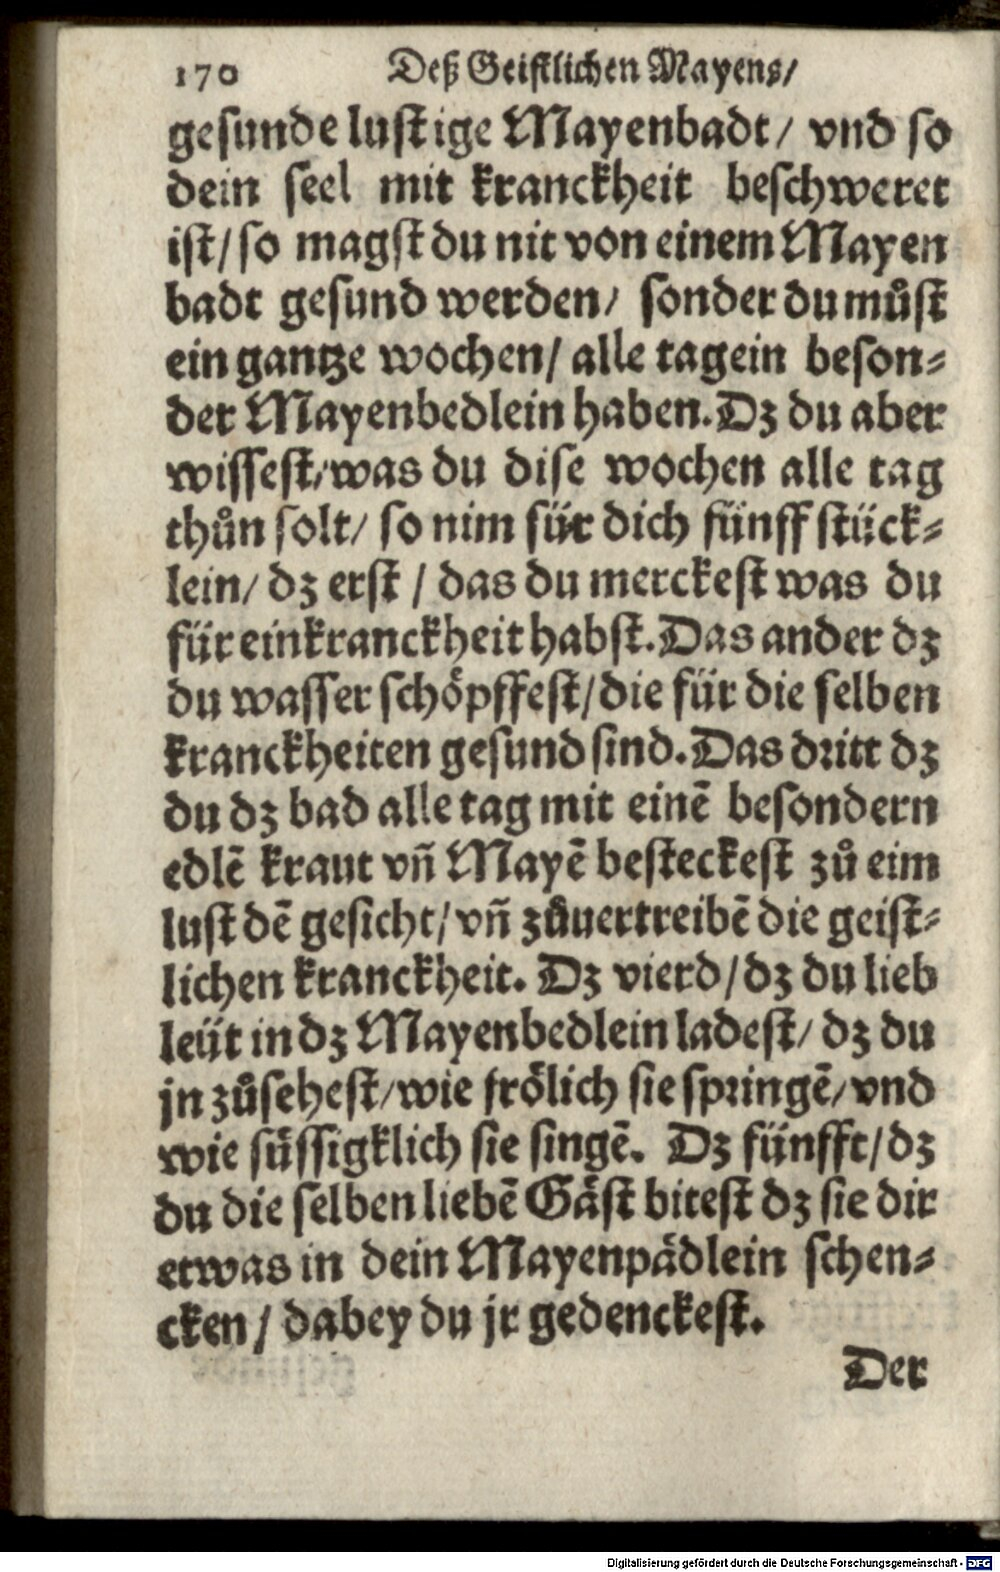 170 Deß Geistlichen Mayens/
gesunde lustige Mayenbadt/ vnd so
dein seel mit kranckheit beschweret
ist/ so magst du nit von einem Mayen
badt gesund werden/ sonder du můst
ein gantze wochen/ alle tag ein beson-
der Mayenbedlein haben. Dz du aber
wissest/ was du dise wochen alle tag
thůn solt/ so nim für dich fünff stück-
lein/ dz erst / das du merckest was du
für ein kranckheit habst. Das ander dz
du wasser schöpffest/ die für die selben
kranckheiten gesund sind. Das dritt dz
du dz bad alle tag mit einē besondern
edlē kraut vn̄ Mayē besteckest zů eim
lust dē gesicht/ vn̄ zůuertreibē die geist-
lichen kranckheit. Dz vierd/ dz du lieb
leüt in dz Mayenbedlein ladest/ dz du
jn zůsehest/ wie frölich sie springē/ vnd
wie süssigklich sie singē. Dz fünfft/ dz
du die selben liebē Gäst bitest dz sie dir
etwas in dein Mayenpädlein schen-
cken / dabey du jr gedenckest.
Der
Digitalisierung gefördert durch die Deutsche Forschungsgemeinschaft - DFG